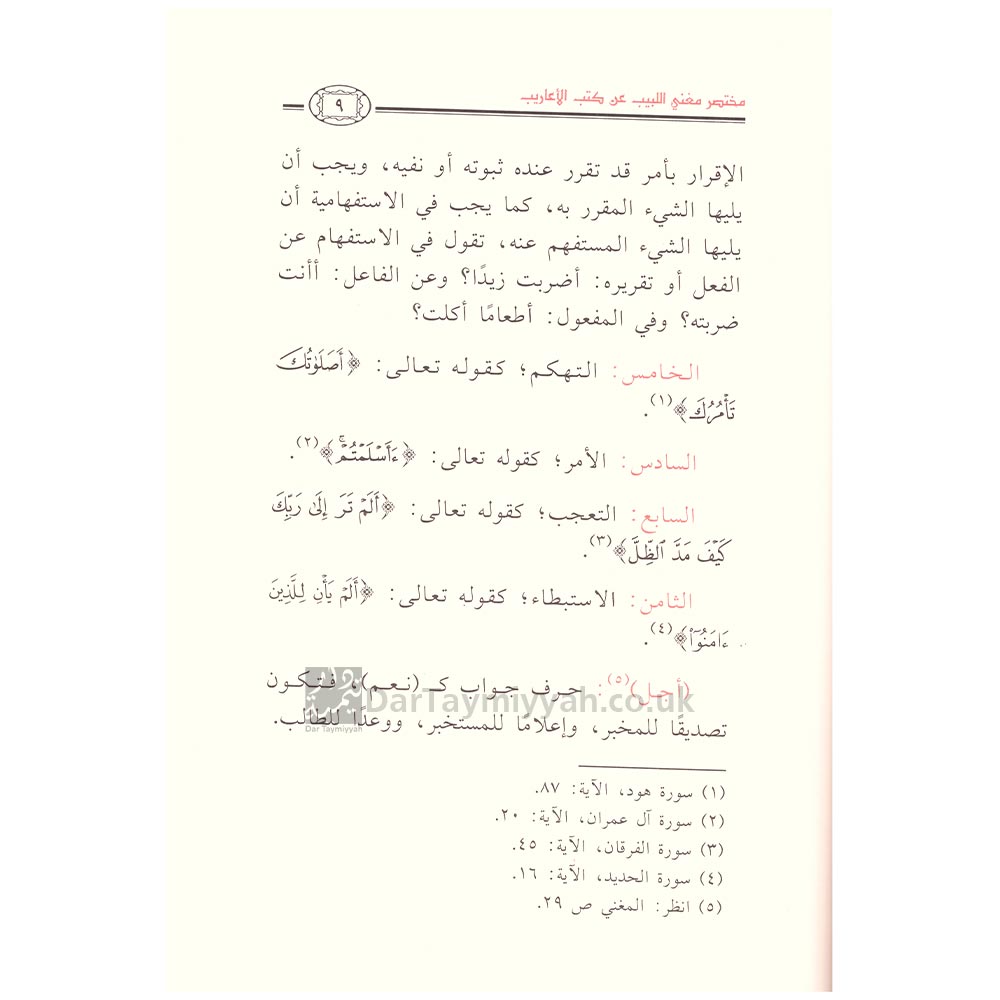 مختصر مغني اللبيب عن كتب الأعاريب
٩
الإقرار بأمر قد تقرر عنده ثبوته أو نفيه، ويجب أن
يليها الشيء المقرر به، كما يجب في الاستفهامية أن
يليها الشيء المستفهم عنه، تقول في الاستفهام عن
الفعل أو تقريره: أضربت زيدًا؟ وعن الفاعل: أأنت
ضربته؟ وفي المفعول: أطعامًا أكلت؟
الخامس: التهكم؛ كقوله تعالى: ﴿أَصَلَوٰتُكَ
تَأْمُرُكَ﴾(١).
السادس: الأمر؛ كقوله تعالى: ﴿ءَأَسْلَمْتُمْ ۚ﴾(٢).
السابع: التعجب؛ كقوله تعالى: ﴿أَلَمْ تَرَ إِلَىٰ رَبِّكَ
كَيْفَ مَدَّ ٱلظِّلَّ﴾(٣).
الثامن: الاستبطاء؛ كقوله تعالى: ﴿أَلَمْ يَأْنِ لِلَّذِينَ
ءَامَنُوٓا۟﴾(٤).
(أجل)(٥): حرف جواب كـ (نعم)، فتكون
DarTaymiyyah.co.uk
تصديقًا للمخبر، وإعلامًا للمستخبر، ووعدًا للطالب.
Dar Taymiyyah
(١) سورة هود، الآية: ٨٧.
(٢) سورة آل عمران، الآية: ٢٠.
(٣) سورة الفرقان، الآية: ٤٥.
(٤) سورة الحديد، الآية: ١٦.
(٥) انظر: المغني ص ٢٩.